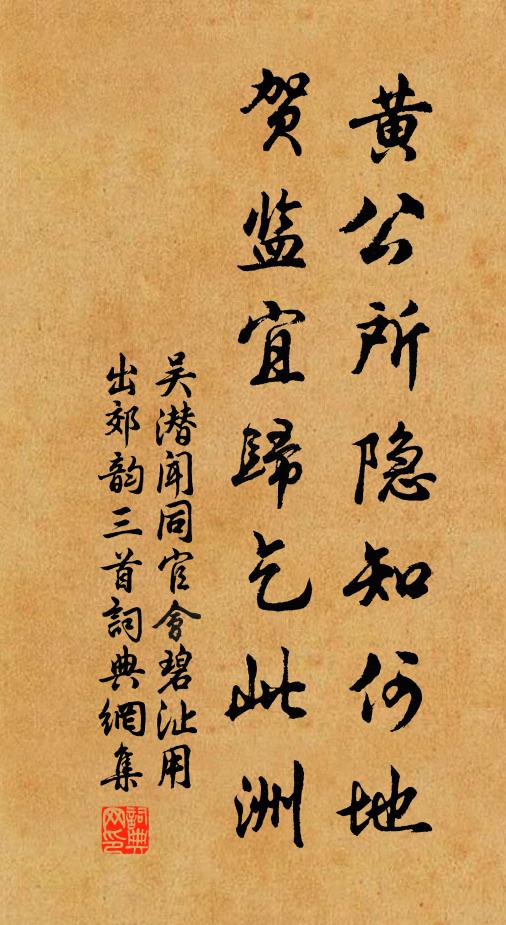 黄公所隐知何地
贺监宜歸乞此洲
吴潜闻同官會碧沚用
出郊韵三首詞典網集
詞典网印